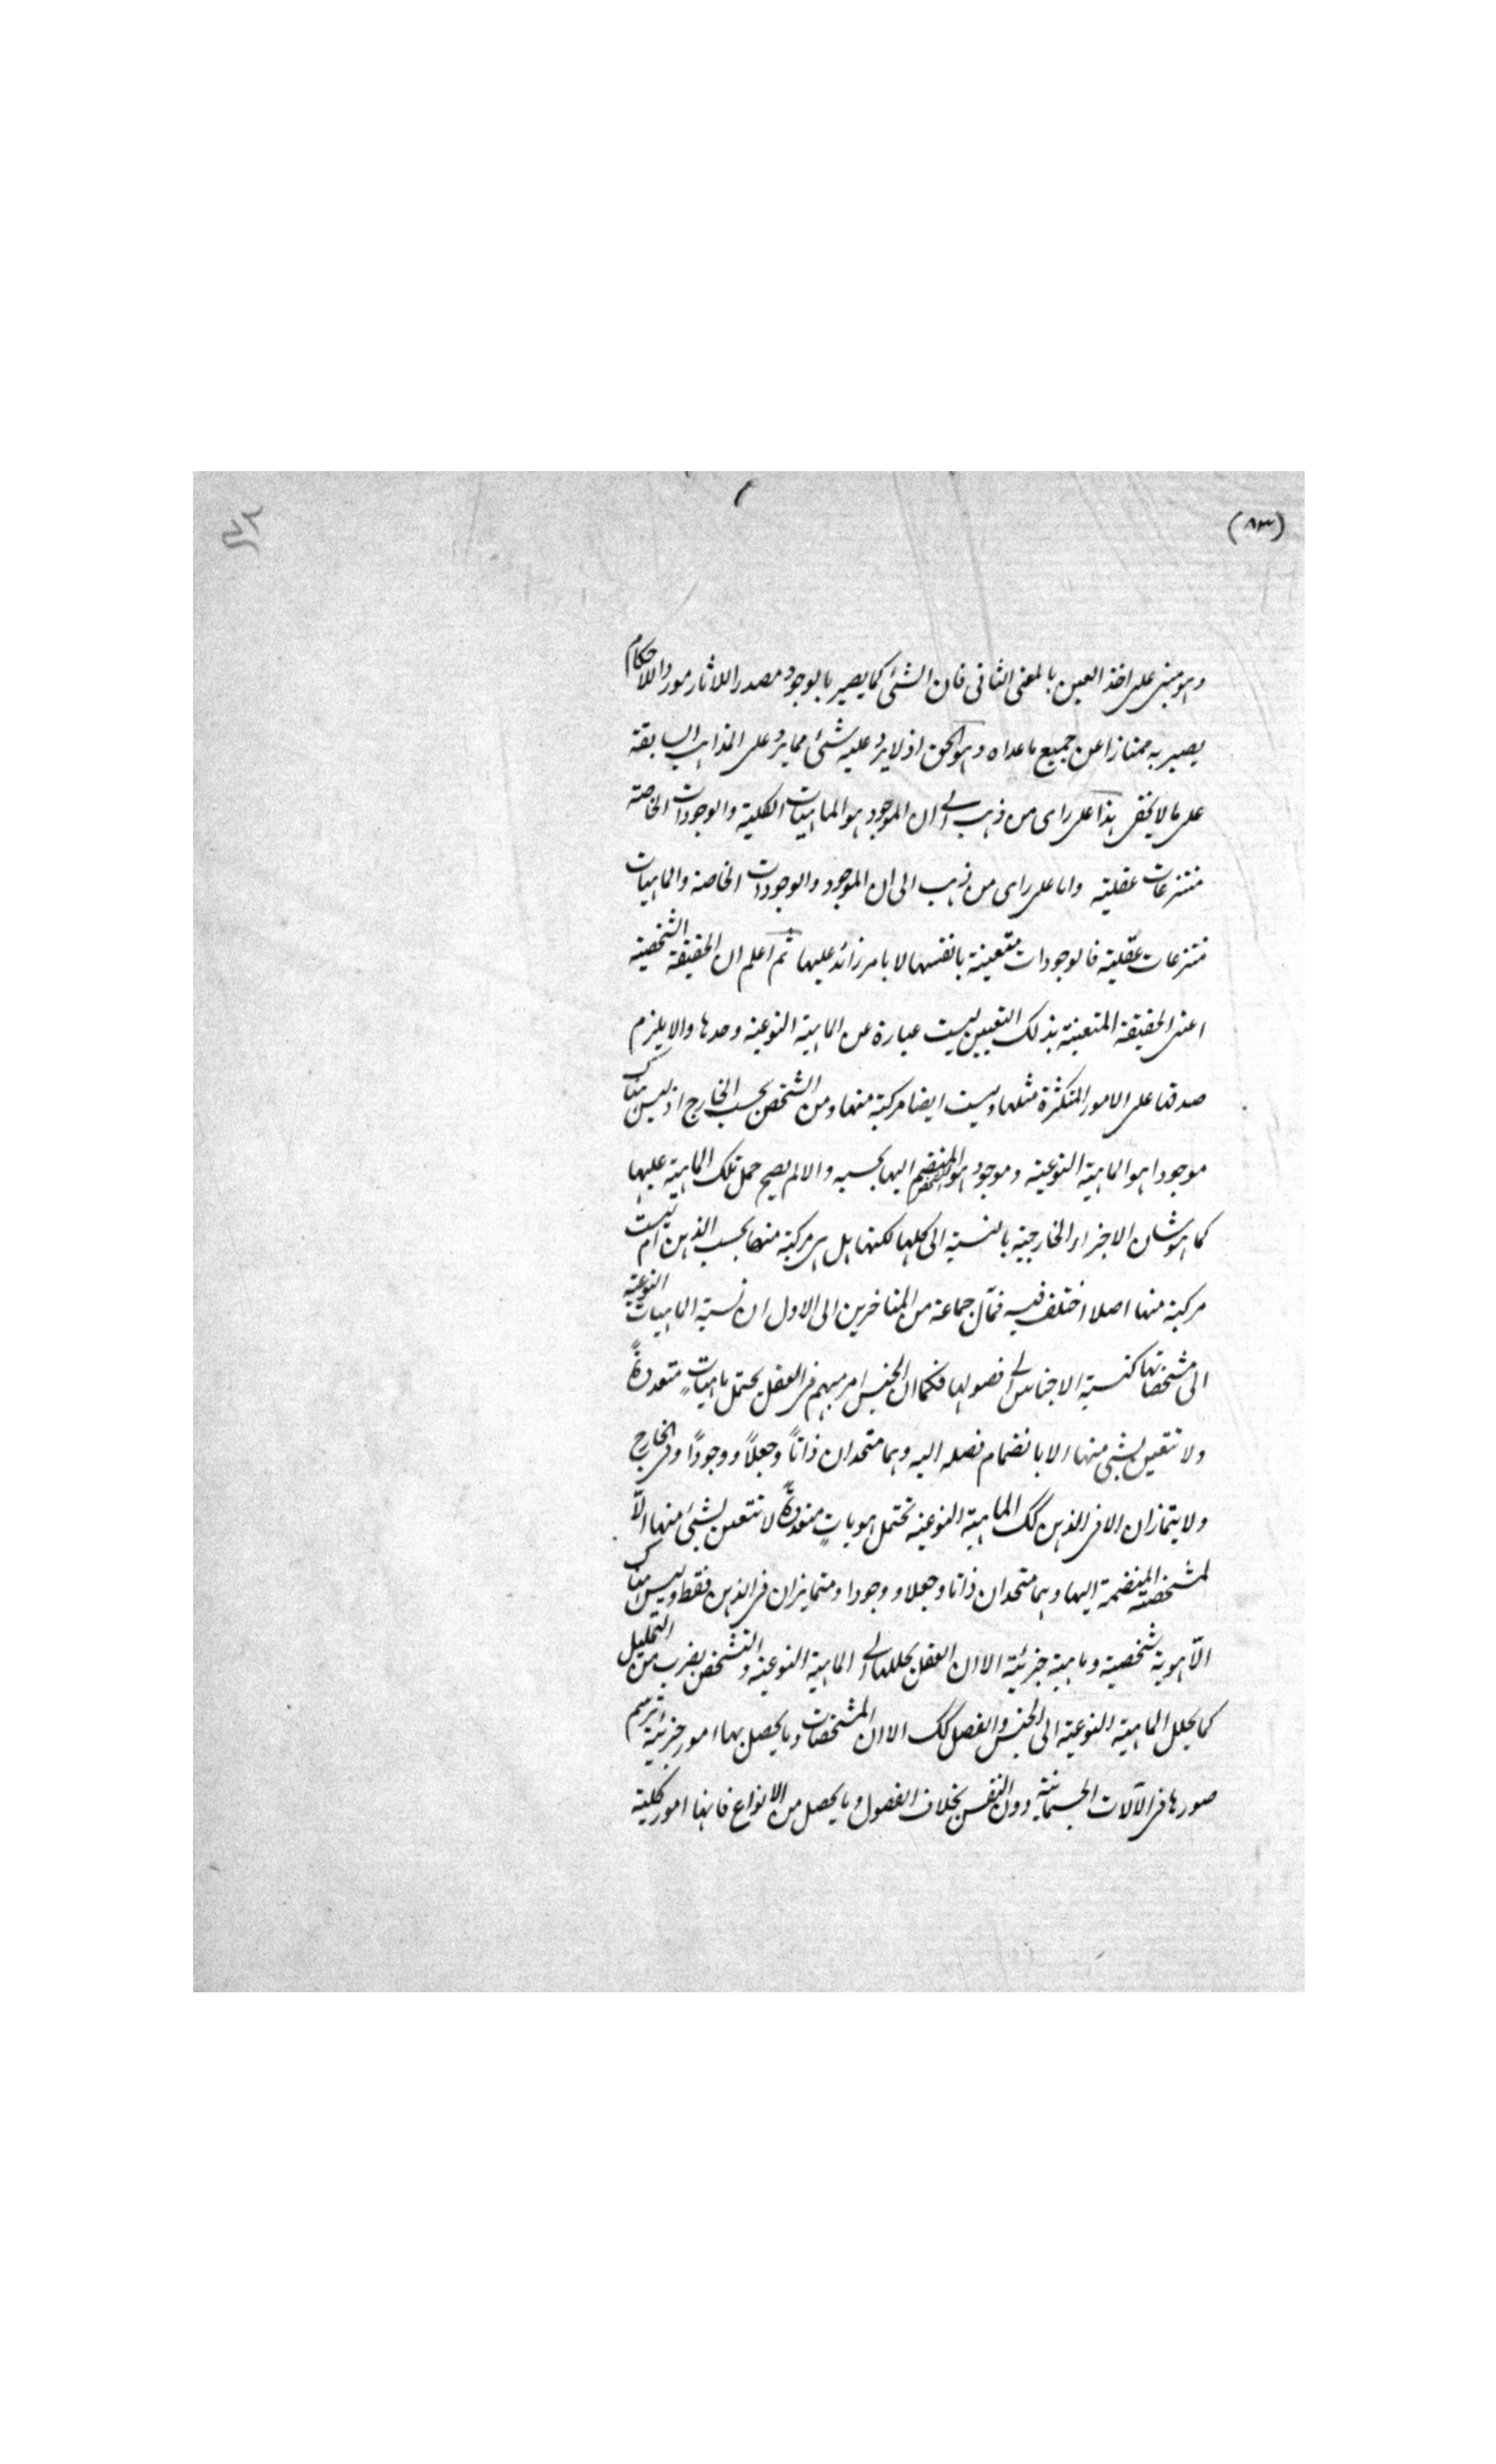 (٨٣)
وهو مبنى على اخذ العين بالمعنى الثانى فان الشئ كما يصير بالوجود مصدرا للاثار موردا للاحكام
يصير به ممتازا عن جميع ما عداه وهو الحق اذ لا يرد عليه شئ مما يرد على المذاهب السابقة
على ما لا يخفى هذا على راى من ذهب الى ان الموجود هو الماهيات الكلية والوجودات الخاصة
منتزعات عقلية واما على راى من ذهب الى ان الموجود والوجودات الخاصة والماهيات
منتزعات عقلية فالوجودات متعينة بانفسها لا بامر زائد عليها ثم اعلم ان الحقيقة الشخصية
اعنى الحقيقة المتعينة بذلك التعيين ليست عبارة عن الماهية النوعية وحدها والا يلزم
صدقها على الامور المتكثرة مثلها وليست ايضا مركبة منها ومن الشخص بحسب الخارج اذ ليس هناك
موجودا هو الماهية النوعية وموجود هو المنضم اليها بحسبه والا لم يصح حمل تلك الماهية عليها
كما هو شان الاجزاء الخارجية بالنسبة الى كلها لكنها هل هى مركبة منها بحسب الذهن ام ليست
مركبة منها اصلا اختلف فيه فمال جماعة من المتاخرين الى الاول ان نسبة الماهيات النوعية
الى مشخصاتها كنسبة الاجناس الى فصولها فكما ان الجنس امر مبهم فى العقل يحتمل ماهياتٍ متعددةً
ولا تتعين لشئ منها الا بانضمام فصله اليه وهما متحدان ذاتاً وجعلاً ووجودًا وفى الخارج
ولا يتمازان الا فى الذهن كك الماهية النوعية تحتمل هوياتٍ متعددةً لا تتعين لشئ منها الاّ
لمشخصة المنضمة اليها وهما متحدان ذاتا وجعلا ووجودا ومتمايزان فى الذهن فقط وليس هناك
الاّ هوية شخصية وماهية جزئية الا ان العقل يحللها الى الماهية النوعية والتشخص بضرب من التحليل
كما يحلل الماهية النوعية الى الجنس والفصل كك الا ان المشخصات وما يحصل بها امور جزئية ترتسم
صورها فى الآلات الجسمانية دون النفس بخلاف الفصول وما يحصل من الانواع فانها امور كلية